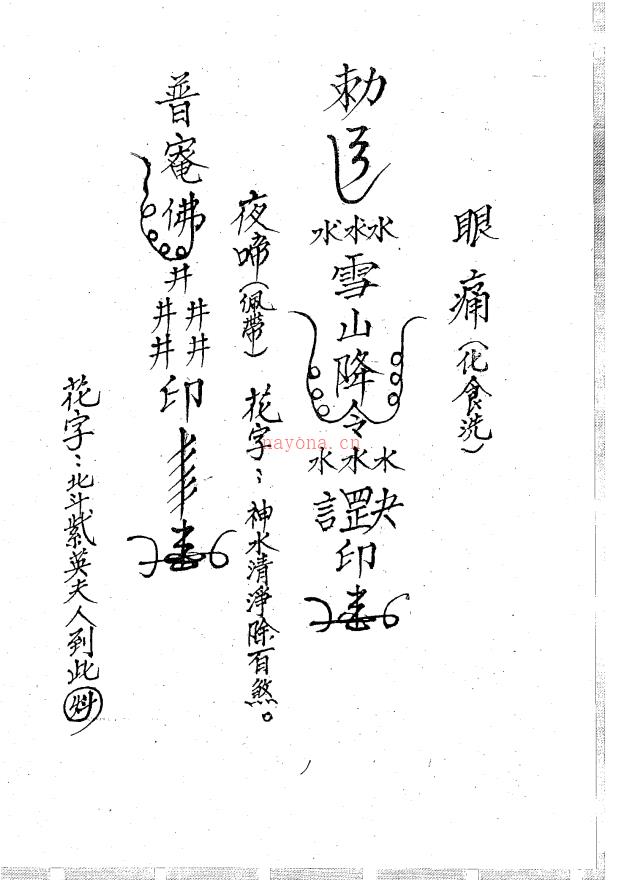 眼痛(化食洗)
勅
水水水
雪山降令
水水水
印
花字:神水清淨除百煞。
夜啼(佩帶)
普庵佛
井
井井
井井
印
花字:北斗紫英夫人到此
nayona.cn